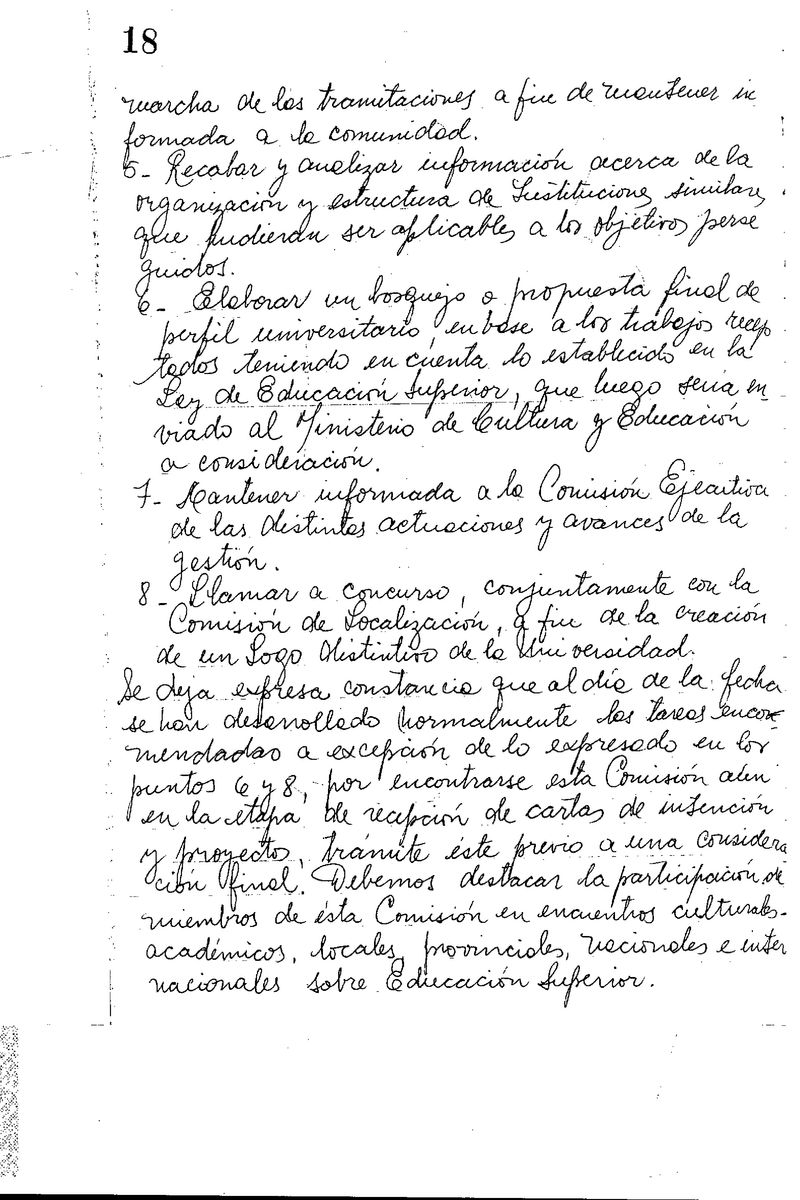 18
marcha de las tramitaciones a fin de mantener in
formada a la comunidad.
5- Recabar y analizar información acerca de la
organización y estructura de Instituciones similares
que pudieran ser aplicables a los objetivos perse
guidos.
6- Elaborar un bosquejo o propuesta final de
perfil universitario, en base a los trabajos recep
tados teniendo en cuenta lo establecido en la
Ley de Educación Superior, que luego sería en
viado al Ministerio de Cultura y Educación
a consideración.
7- Mantener informada a la Comisión Ejecutiva
de las distintas actuaciones y avances de la
gestión.
8- Llamar a concurso, conjuntamente con la
Comisión de Localización, a fin de la creación
de un Logo distintivo de la Universidad.
Se deja expresa constancia que al día de la fecha
se han desarrollado normalmente las tareas enco
mendadas a excepción de lo expresado en los
puntos 6 y 8, por encontrarse esta Comisión aún
en la etapa de recepción de cartas de intención
y proyectos, trámite éste previo a una considera
ción final. Debemos destacar la participación de
miembros de ésta Comisión en encuentros culturales-
académicos, locales, provinciales, nacionales e inter
nacionales sobre Educación Superior.